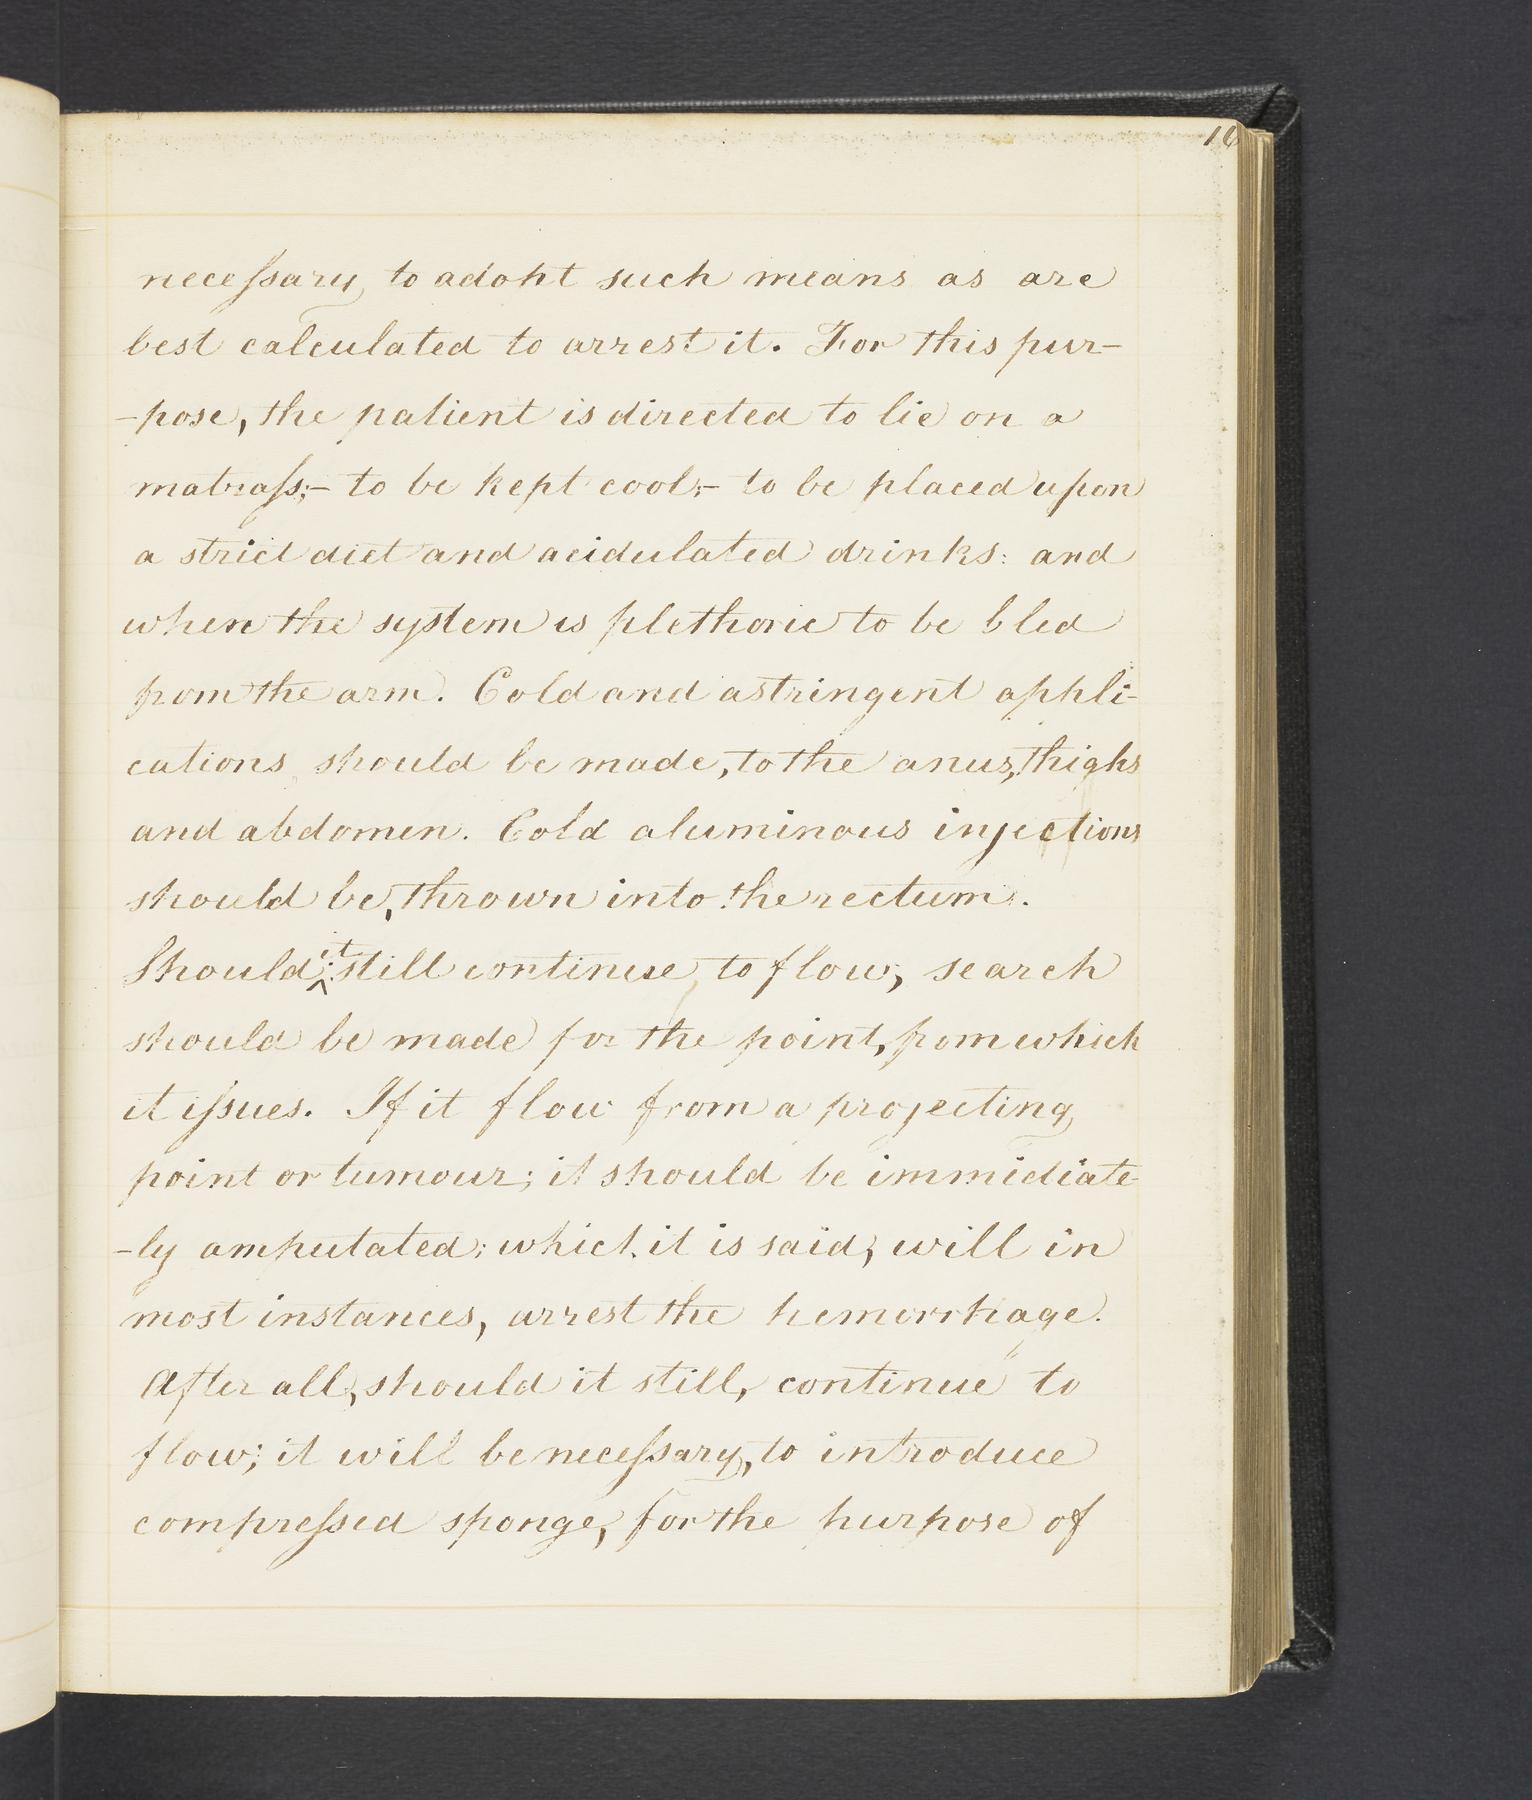 16
necessary to adopt such means as are
best calculated to arrest it. For this pur-
-pose, the patient is directed to lie on a
matrass;- to be kept cool;- to be placed upon
a strict diet and acidulated drinks: and
when the system is plethoric to be bled
from the arm. Cold and astringent appli-
cations should be made, to the anus, thighs
and abdomen. Cold aluminous injections
should be, thrown into the rectum.
Should it still continue to flow; search
should be made for the point, from which
it issues. If it flow from a projecting
point or tumour; it should be immidiate-
-ly amputated; which it is said, will in
most instances, arrest the hemorrhage.
After all, should it still, continue to
flow; it will be necessary, to introduce
compressed sponge, for the purpose of